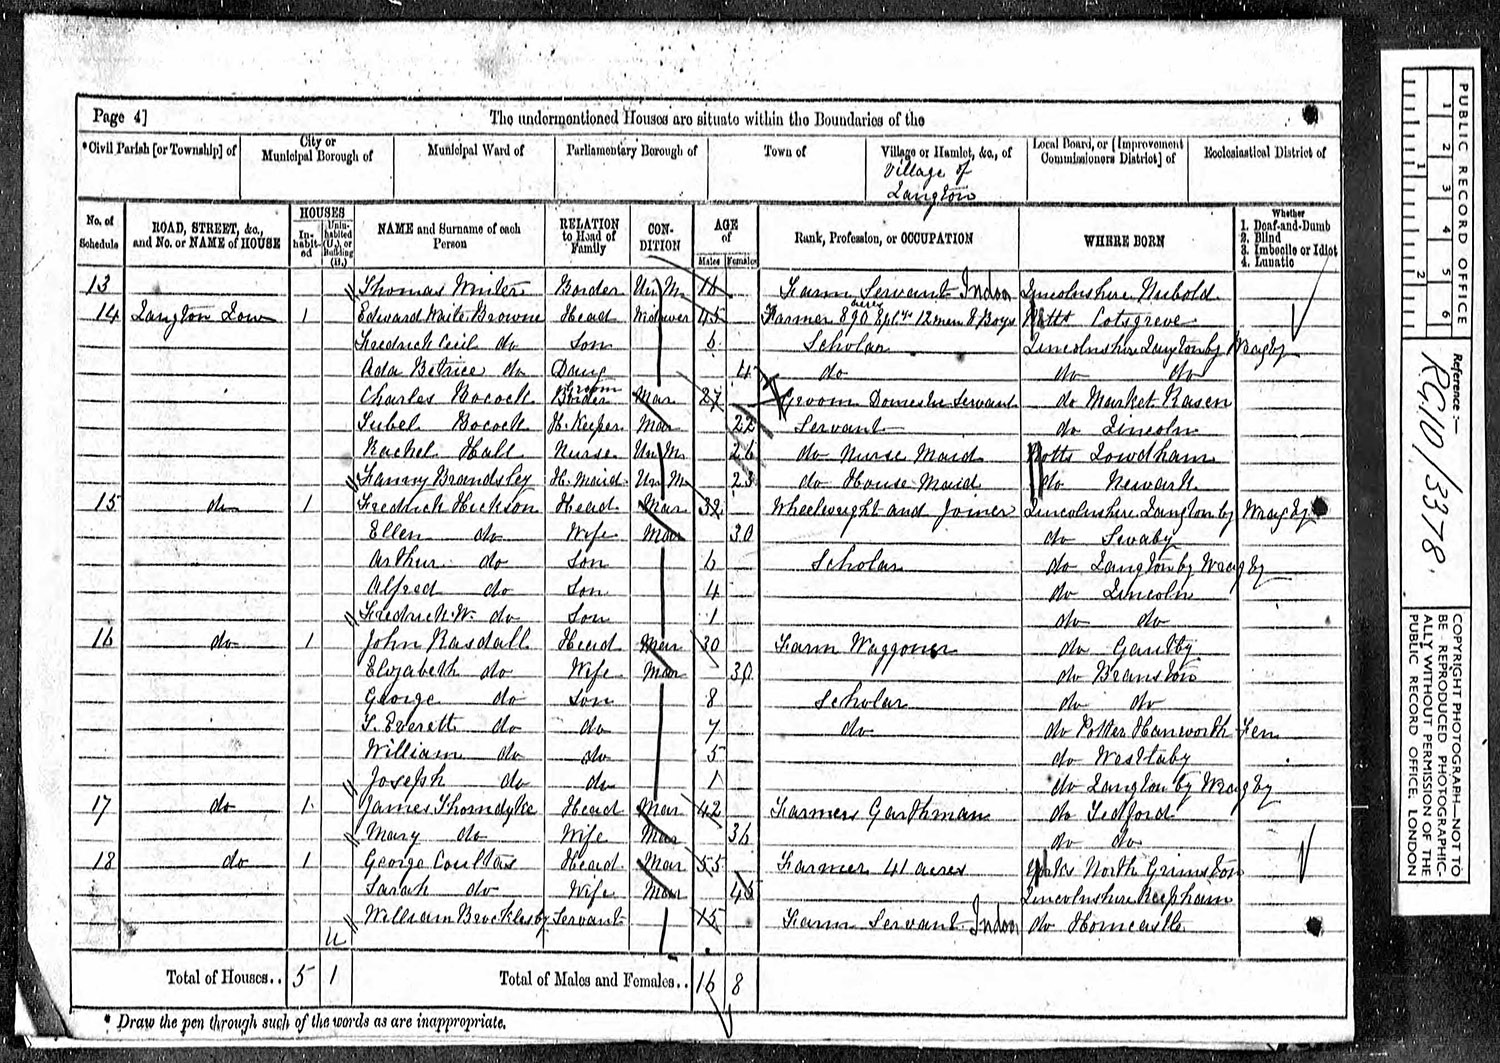 Page 4]
The undermentioned Houses are situate within the Boundaries of the
*Civil Parish [or Township] of
City or Municipal Borough of
Municipal Ward of
Parliamentary Borough of
Town of
Village or Hamlet, &c., of
Village of Langton
Local Board, or [Improvement Commissioners District] of
Ecclesiastical District of
No. of Schedule
ROAD, STREET, &c., and No. or NAME of HOUSE
HOUSES
Inhabited
Uninhabited (U.), or Building (B.)
NAME and Surname of each Person
RELATION to Head of Family
CONDITION
AGE of
Males Females
Rank, Profession, or OCCUPATION
WHERE BORN
Whether
1. Deaf-and-Dumb
2. Blind
3. Imbecile or Idiot
4. Lunatic
13 Thomas Winter Border Un M Farm Servant Indoor Lincolnshire
14 Langton Low 1 Edward Waite Browne Head Widower 45 Farmer 890 acres 12 men 8 Boys Notts Cotsgreve
Fredrick Cecil do Son 6 Scholar Lincolnshire Langton by Wragby
Ada Betrice do Daug 4 do do do
Charles Bocock Border Groom Mar 27 Groom Domestic Servant do Market Rasen
Bocock H. Keeper Mar 22 Servant do Lincoln
Rachel Hall Nurse Un M 26 do Nurse Maid Notts Lowdham
Fanny Brandsley H. Maid Un M 23 do House Maid do Newark
15 do 1 Fredrick Hickson Head Mar 32 Wheelwright and Joiner Lincolnshire Langton by Wragby
Ellen do Wife Mar 30 do Swaby
Arthur do Son 6 Scholar do Langton by Wragby
Alfred do Son 4 do Lincoln
Fredrick W. do Son 1 do do
16 do 1 John Rasdall Head Mar 30 Farm Waggoner do Gautby
Elizabeth do Wife Mar 30 do Branston
George do Son 8 Scholar do do
T. Everett do do 7 do do Potter Hanworth Fen
William do do 5 do Westlaby
Joseph do do 1 do Langton by Wragby
17 do 1 James Thorndyke Head Mar 42 Farmers Garthman do Tedford
Mary do Wife Mar 36 do do
18 do 1 George Coultas Head Mar 55 Farmer 41 acres Yorks North Grimston
Sarah do Wife Mar 45 Lincolnshire Reepham
William Brocklesby Servant 15 Farm Servant Indoor do Horncastle
U
Total of Houses.. 5 1 Total of Males and Females.. 16 8
* Draw the pen through such of the words as are inappropriate.
PUBLIC RECORD OFFICE
1 2 3 4 5 6
1 2
Reference:-
RG10/3378
COPYRIGHT PHOTOGRAPH—NOT TO BE REPRODUCED PHOTOGRAPHICALLY WITHOUT PERMISSION OF THE PUBLIC RECORD OFFICE, LONDON